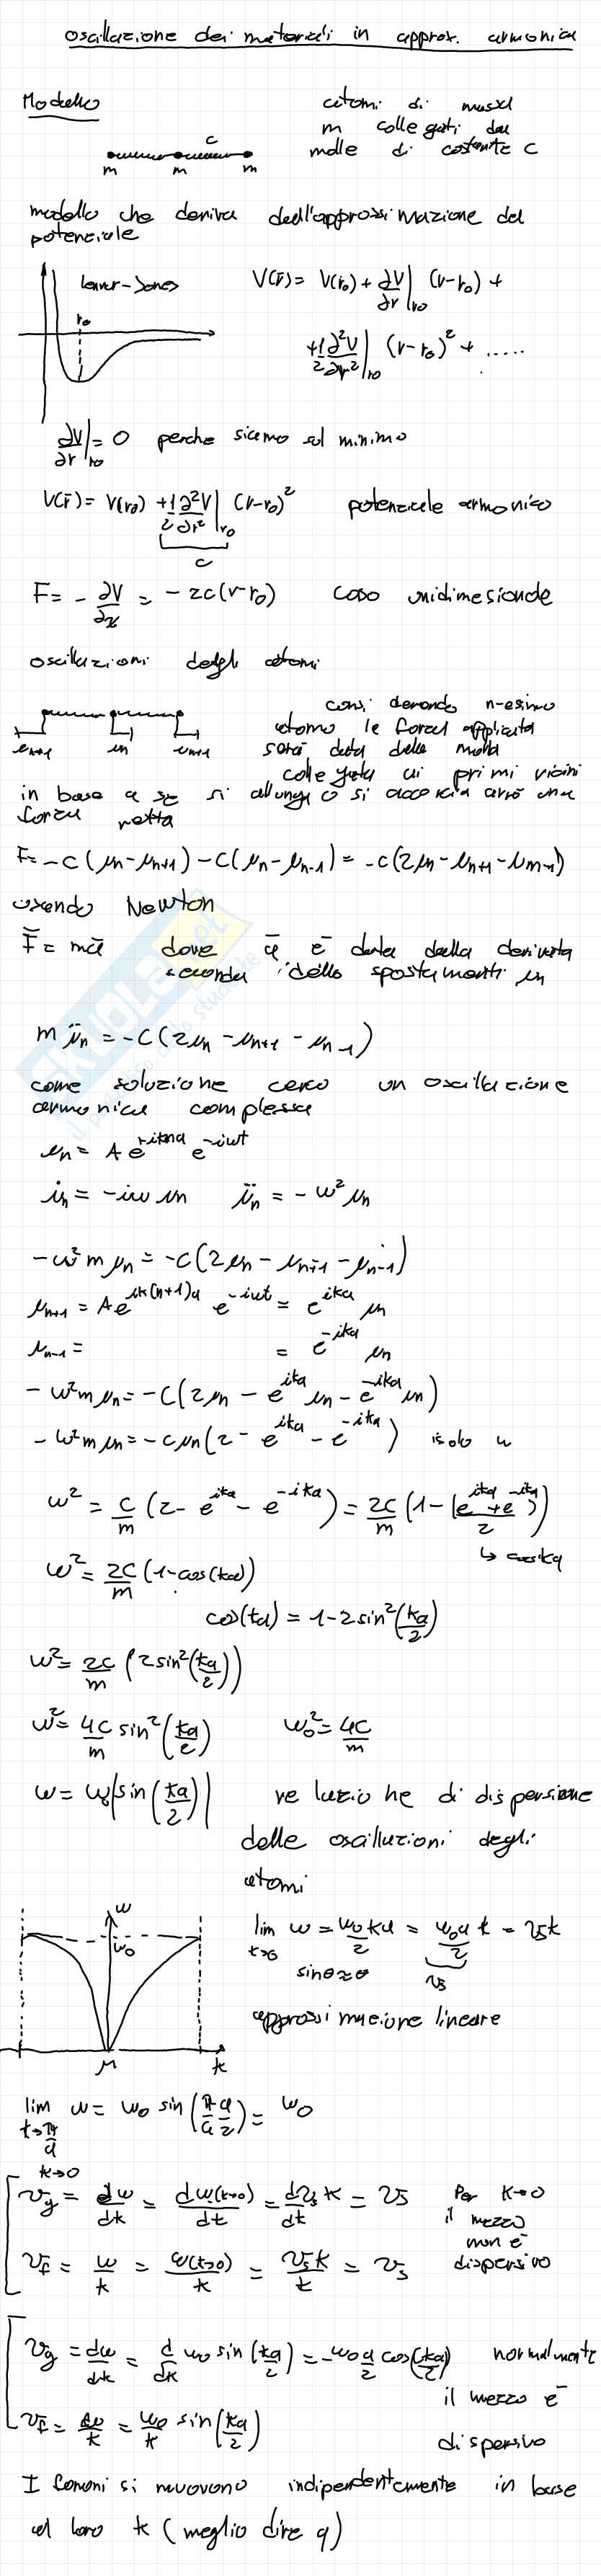 oscillazione dei materiali in approx. armonica
Modello
atomi di massa
m collegati da
molle di costante C
C
m m m
modello che deriva dall'approssimazione del
potenziale
Lennar-Jones
r₀
V(r̄) = V(r₀) + ∂V/∂r|r₀ (r-r₀) +
+ 1/2 ∂²V/∂r²|r₀ (r-r₀)² + .....
∂V/∂r|r₀ = 0 perche siamo sul minimo
V(r̄) = V(r₀) + 1/2 ∂²V/∂r²|r₀ (r-r₀)² potenziale armonico
C
F = - ∂V/∂x = - 2C(r-r₀) caso unidimesionale
oscillazioni degli atomi
considerando n-esimo
atomo le forza applicata
sarà data dalla molla
collegata ai primi vicini
in base a se si allunga o si accorcia avrò una
forza netta
F = -C(μn-μn+1) - C(μn-μn-1) = -C(2μn-μn+1-μn-1)
usando Newton
F̄ = mā dove ā è data dalla derivata
seconda dello spostamenti μn
m μ̈n = -C(2μn - μn+1 - μn-1)
come soluzione cerco un oscillazione
armonica complessa
μn = A e^ikna e^-iωt
μ̇n = -iω μn μ̈n = -ω² μn
-ω² m μn = -C(2μn - μn+1 - μn-1)
μn+1 = A e^ik(n+1)a e^-iωt = e^ika μn
μn-1 = = e^-ika μn
-ω² m μn = -C(2μn - e^ika μn - e^-ika μn)
-ω² m μn = -C μn(2 - e^ika - e^-ika) isolo ω
ω² = C/m (2 - e^ika - e^-ika) = 2C/m (1 - (e^ika + e^-ika)/2)
↳ coska
ω² = 2C/m (1-cos(ka))
cos(ka) = 1-2sin²(ka/2)
ω² = 2C/m (2sin²(ka/2))
ω² = 4C/m sin²(ka/2) ω₀² = 4C/m
ω = ω₀|sin(ka/2)| relazione di dispersione
delle oscillazioni degli
atomi
ω
ω₀
k
lim k→0 ω = ω₀ka/2 = ω₀a/2 k = vsk
sinθ≈θ vs
approssimazione lineare
lim k→π/a ω = ω₀ sin(π/a a/2) = ω₀
k→0
vg = dω/dk = dω(k→0)/dk = dvs k/dk = vs Per k→0
il mezzo
non è
dispersivo
vf = ω/k = ω(k→0)/k = vsk/k = vs
vg = dω/dk = d/dk ω₀ sin(ka/2) = -ω₀a/2 cos(ka/2) normalmente
il mezzo è
dispersivo
vf = ω/k = ω₀/k sin(ka/2)
I fononi si muovono indipendentemente in base
al loro k (meglio dire q)